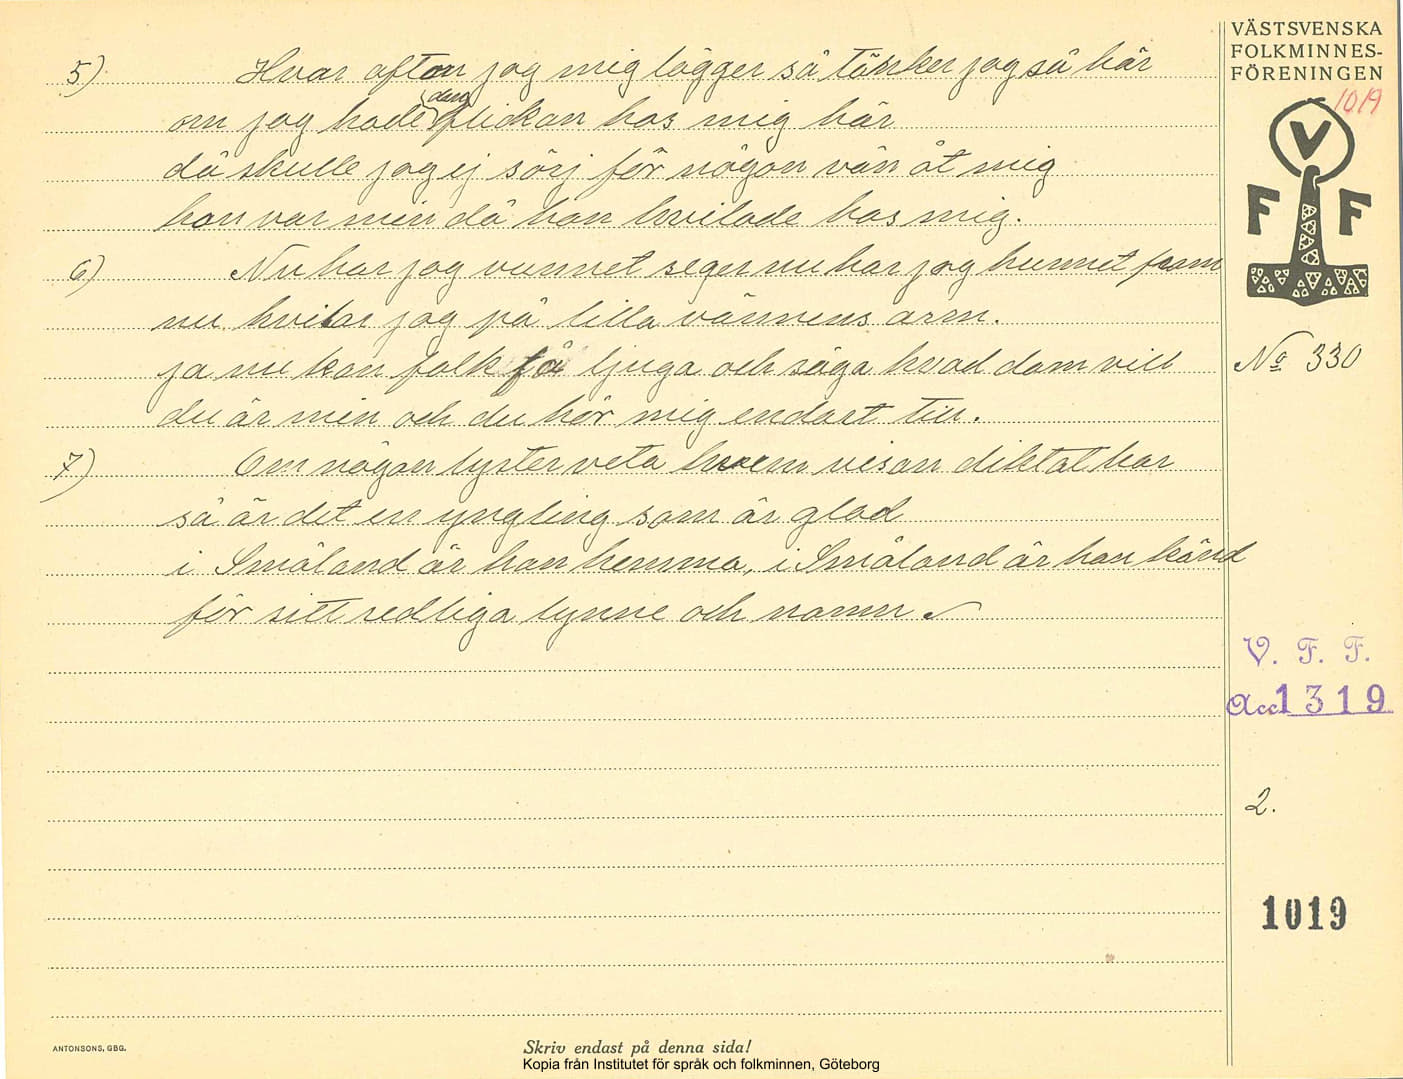 5) Hvar afton jag mig lägger så tänker jag så här
om jag hade den flickan hos mig här
då skulle jag ej sörj för någon vän åt mig
hon var min då hon hvilade hos mig.
6) Nu har jag vunnet seger nu har jag hunnit fram
nu hvilar jag på lilla vännens arm.
ja nu kan folk få ljuga och säga hvad dom vill
du är min och du hör mig endast till.
7) Om någon lyster veta hvem visan diktat har
så är det en yngling som är glad
i Småland är han hemma, i Småland är han känd
för sitt redliga lynne och namn.
VÄSTSVENSKA
FOLKMINNES-
FÖRENINGEN
1019
V
F F
No 330
V. F. F.
Acc 1319
2.
1019
ANTONSONS, GBG.
Skriv endast på denna sida!
Kopia från Institutet för språk och folkminnen, Göteborg